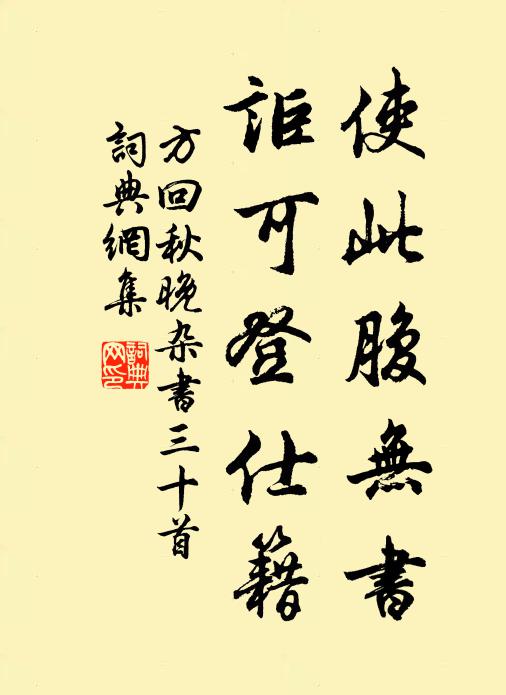 使此腹無書
詎可登仕籍
方回秋晚杂書三十首
詞典網集
詞典網印